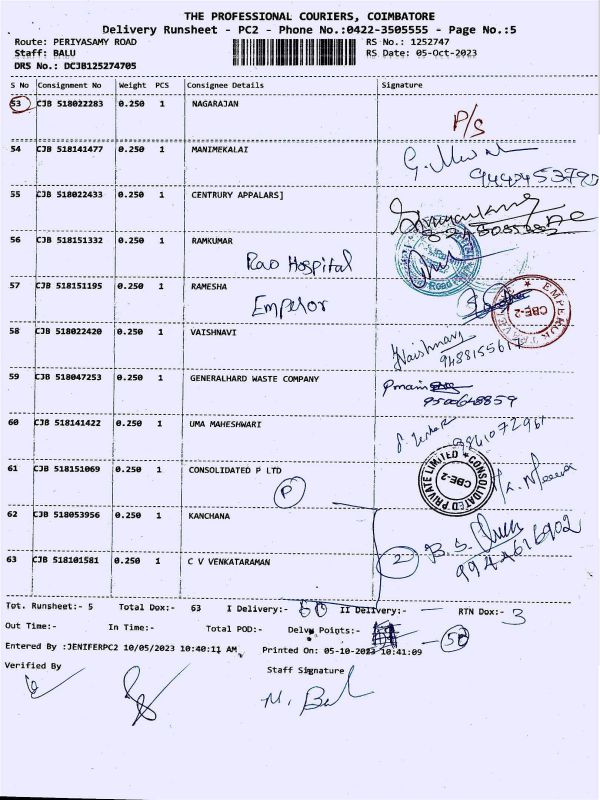 THE PROFESSIONAL COURIERS, COIMBATORE
Delivery Runsheet - PC2 - Phone No.:0422-3505555 - Page No.:5
Route: PERIYASAMY ROAD RS No.: 1252747
Staff: BALU RS Date: 05-Oct-2023
DRS No.: DCJB125274705
S No Consignment No Weight PCS Consignee Details Signature
53 CJB 518022283 0.250 1 NAGARAJAN
P/S
54 CJB 518141477 0.250 1 MANIMEKALAI
55 CJB 518022433 0.250 1 CENTRURY APPALARS]
56 CJB 518151332 0.250 1 RAMKUMAR
Rao Hospital
57 CJB 518151195 0.250 1 RAMESHA
Emperor
CBE-2
58 CJB 518022420 0.250 1 VAISHNAVI
Vaishnavi
59 CJB 518047253 0.250 1 GENERALHARD WASTE COMPANY
9500648859
60 CJB 518141422 0.250 1 UMA MAHESHWARI
61 CJB 518151069 0.250 1 CONSOLIDATED P LTD
P
CONSOLIDATED PRIVATE LIMITED
CBE-2
62 CJB 518053956 0.250 1 KANCHANA
2
9944616902
63 CJB 518101581 0.250 1 C V VENKATARAMAN
Tot. Runsheet:- 5 Total Dox:- 63 I Delivery:- 60 II Delivery:- — RTN Dox:- 3
Out Time:- In Time:- Total POD:- Delv. Points:-
Entered By :JENIFERPC2 10/05/2023 10:40:11 AM Printed On: 05-10-2023 10:41:09
Verified By Staff Signature